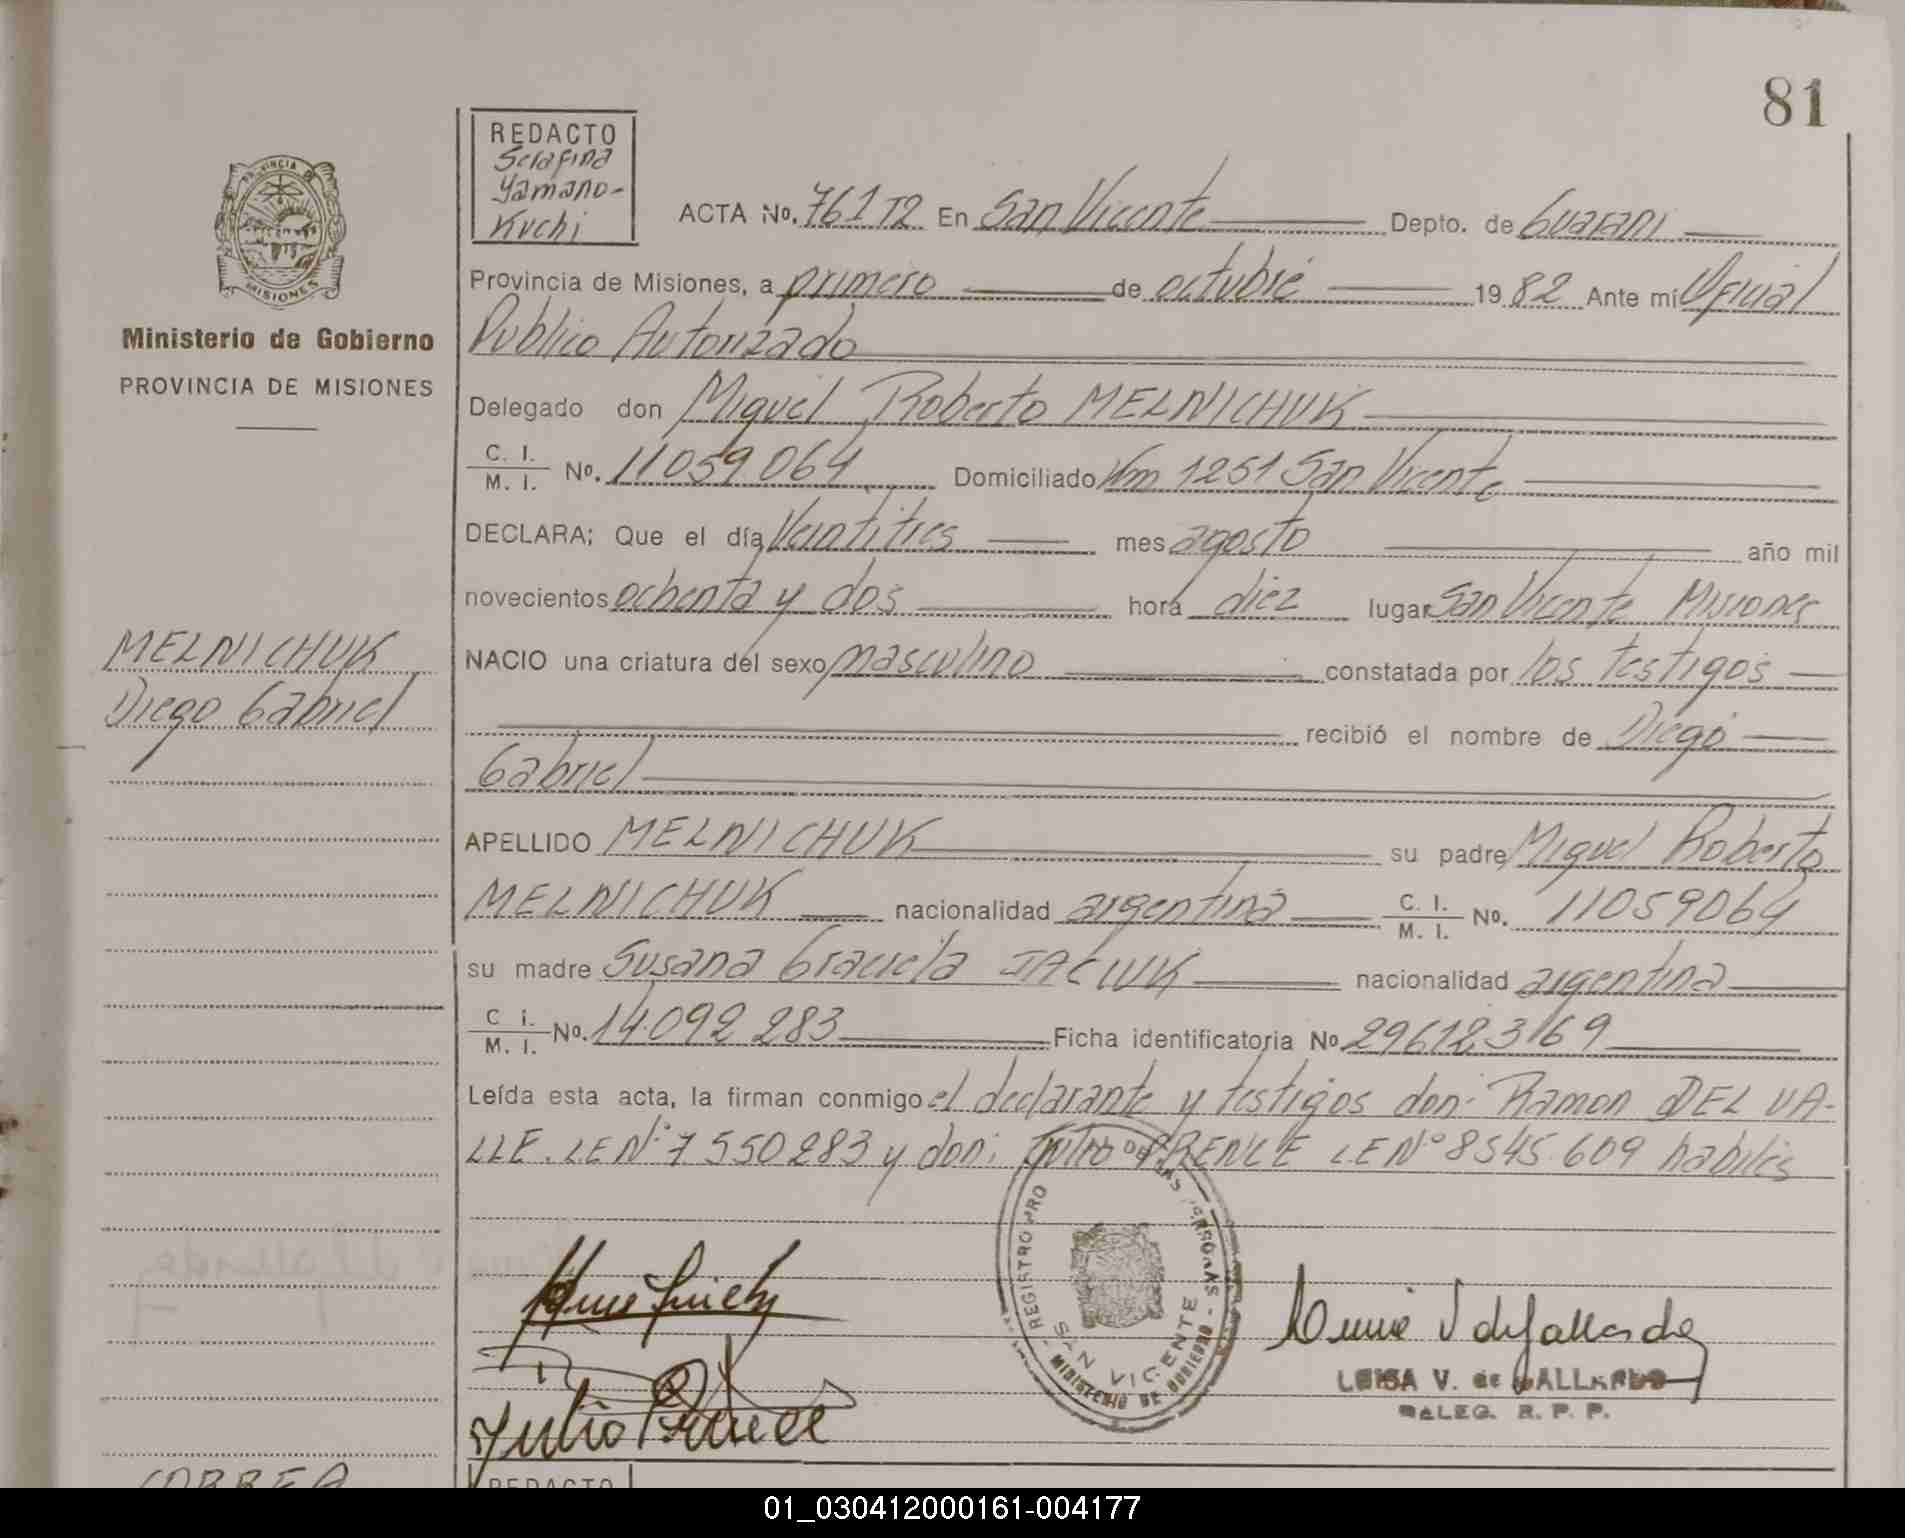 81
REDACTO
Serafina
Yamano-
Kuchi
PROVINCIA DE
MISIONES
Ministerio de Gobierno
PROVINCIA DE MISIONES
ACTA No. 761 T2 En San Vicente Depto. de Guarani
Provincia de Misiones, a primero de octubre 19 82 Ante mí Oficial
Publico Autorizado
Delegado don Miguel Roberto MELNICHUK
C. I. / M. I. No. 11059064 Domiciliado Km 1251 San Vicente
DECLARA; Que el día Veintitres mes agosto año mil
novecientos ochenta y dos hora diez lugar San Vicente Misiones
MELNICHUK
Diego Gabriel
NACIO una criatura del sexo masculino constatada por los testigos
recibió el nombre de Diego
Gabriel
APELLIDO MELNICHUK su padre Miguel Roberto
MELNICHUK nacionalidad argentina C. I. / M. I. No. 11059064
su madre Susana Graciela JACIUK nacionalidad argentina
C I. / M. I. No. 14.092 283 Ficha identificatoria No 29612369
Leída esta acta, la firman conmigo el declarante y testigos don: Ramon DEL VA-
LLE. LE Nº 7 550 283 y don: Julio PRENCE LE Nº 8545.609 habiles
REGISTRO PRO DE LAS PERSONAS
SAN VICENTE
MINISTERIO DE GOBIERNO
Julio Prence
LUISA V. de GALLARDO
DELEG. R. P. P.
CORREA
REDACTO
01_030412000161-004177